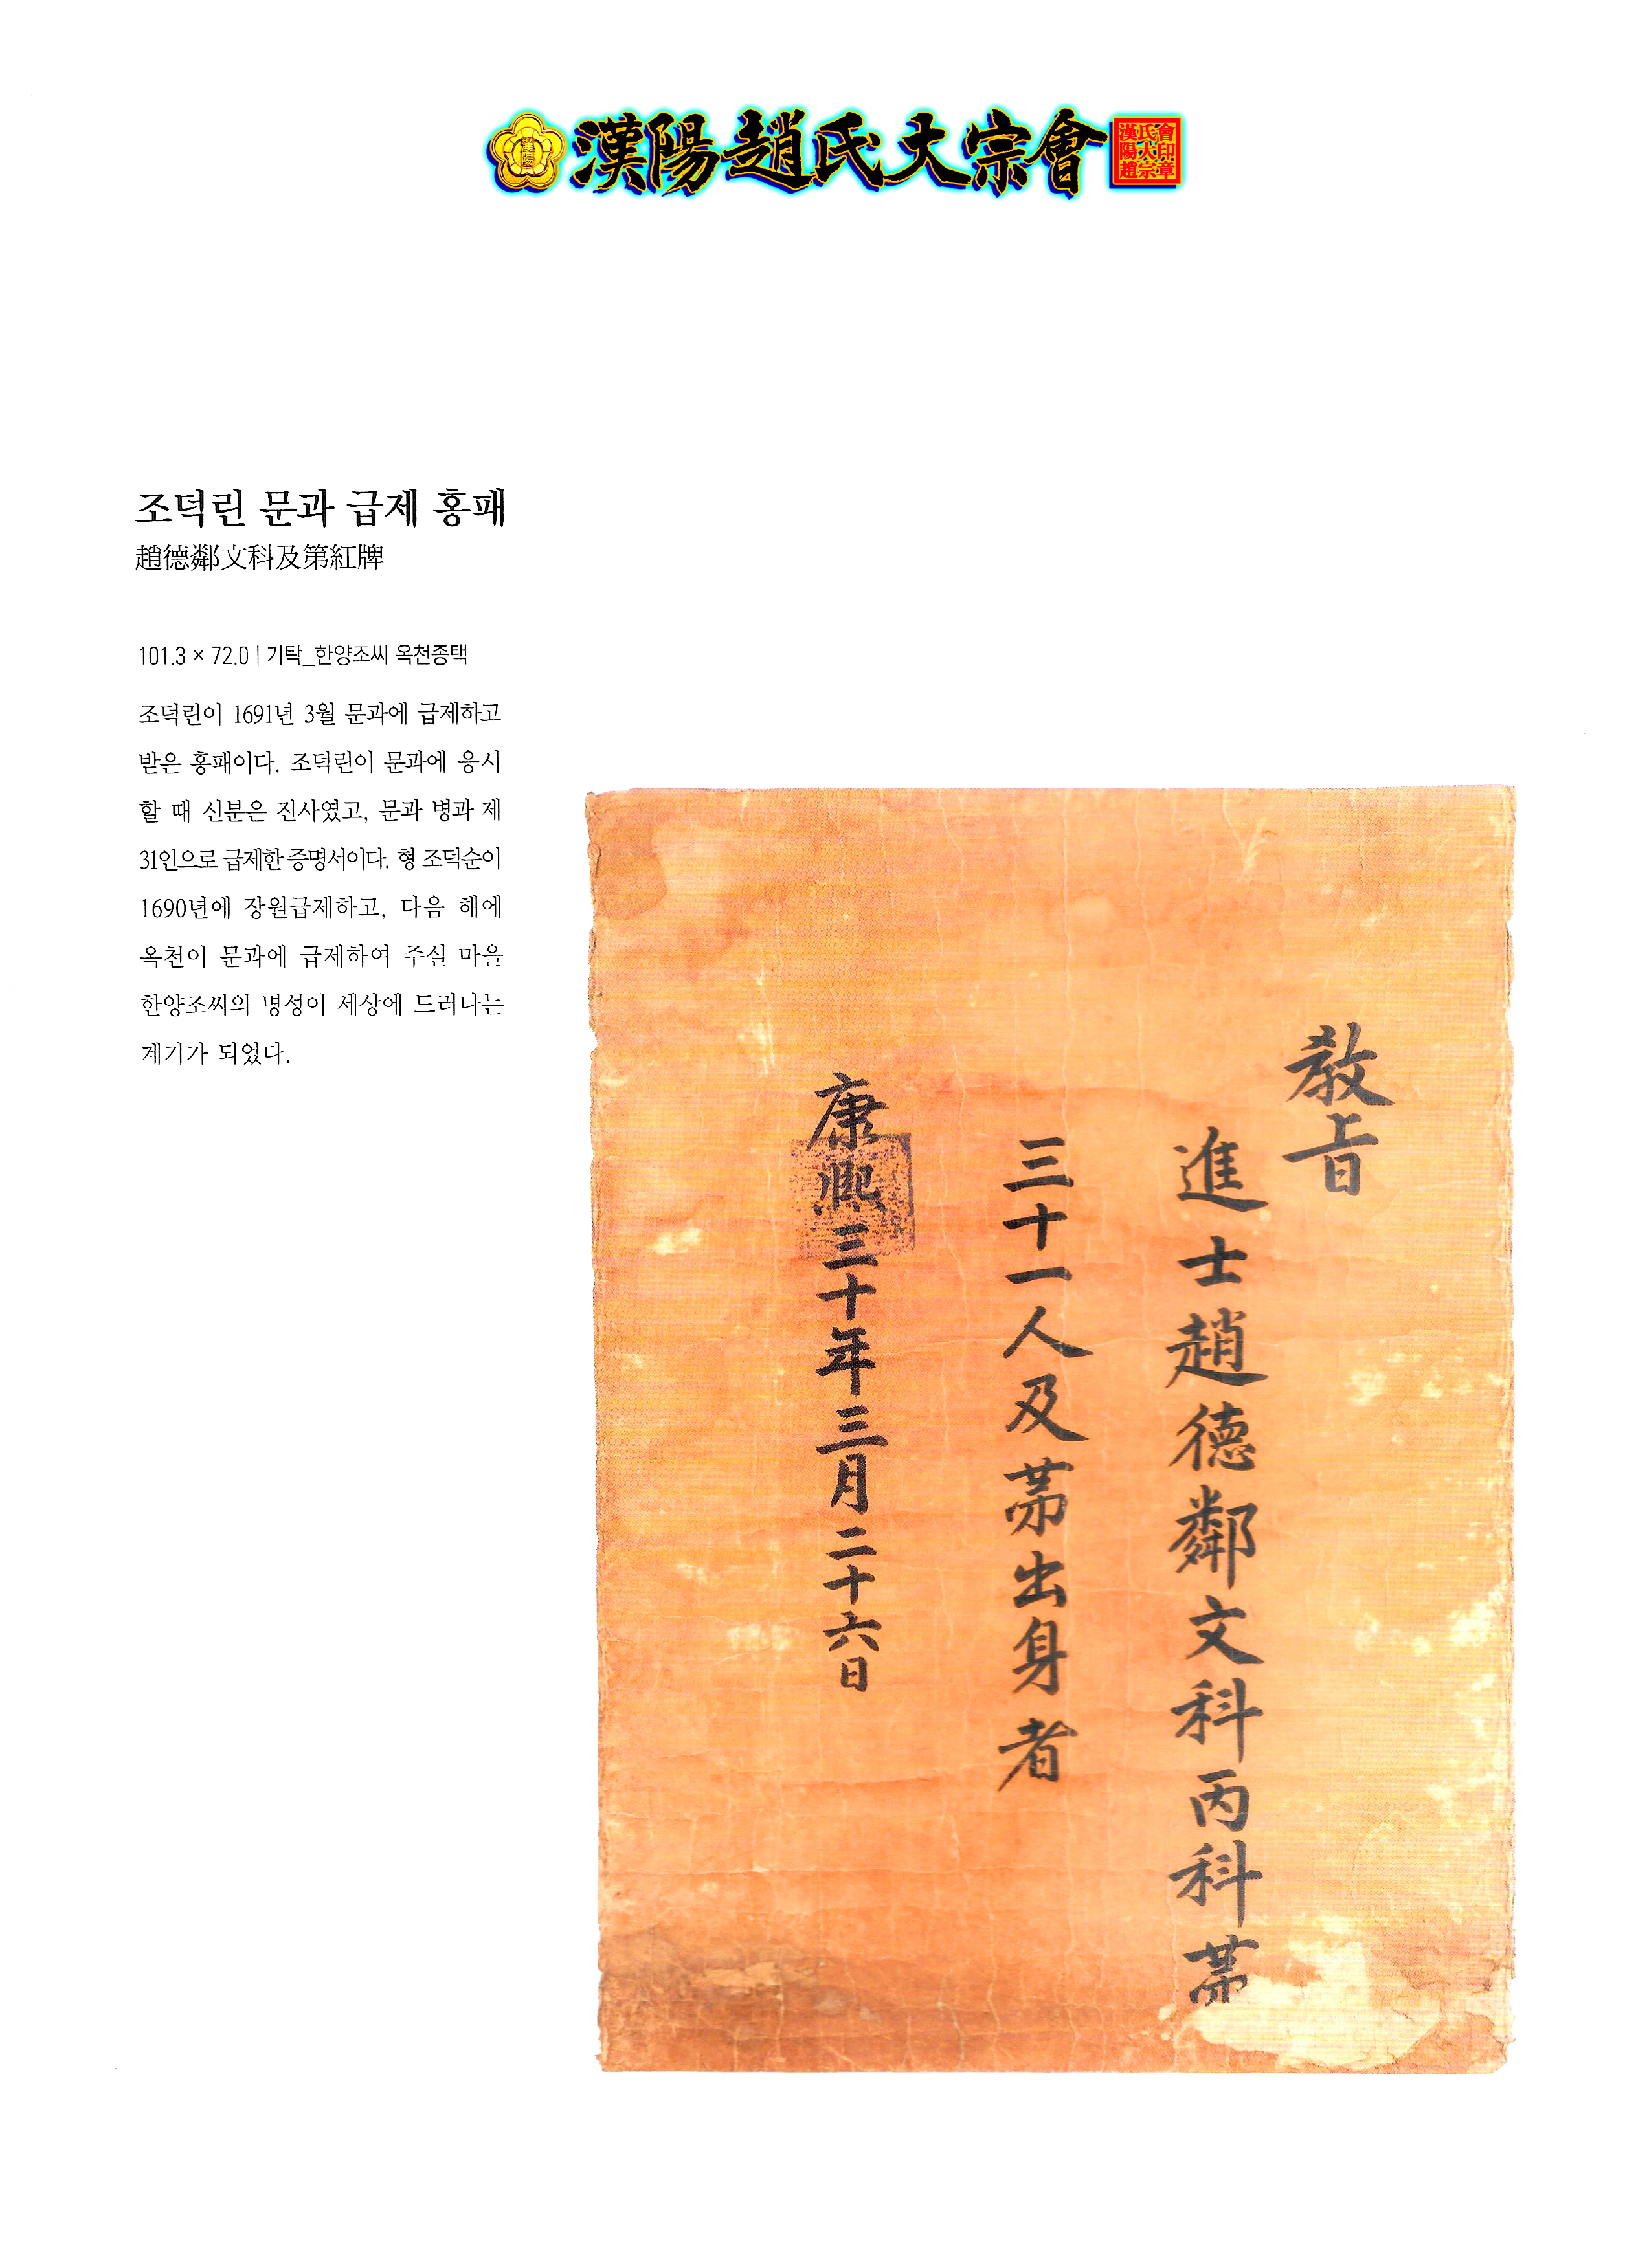 漢陽趙氏大宗會
漢陽趙氏大宗會印章
조덕린 문과 급제 홍패
趙德鄰文科及第紅牌
101.3 × 72.0 | 기탁_한양조씨 옥천종택
조덕린이 1691년 3월 문과에 급제하고
받은 홍패이다. 조덕린이 문과에 응시
할 때 신분은 진사였고, 문과 병과 제
31인으로 급제한 증명서이다. 형 조덕순이
1690년에 장원급제하고, 다음 해에
옥천이 문과에 급제하여 주실 마을
한양조씨의 명성이 세상에 드러나는
계기가 되었다.
敎旨
進士趙德鄰文科丙科第
三十一人及第出身者
康熙三十年三月二十六日